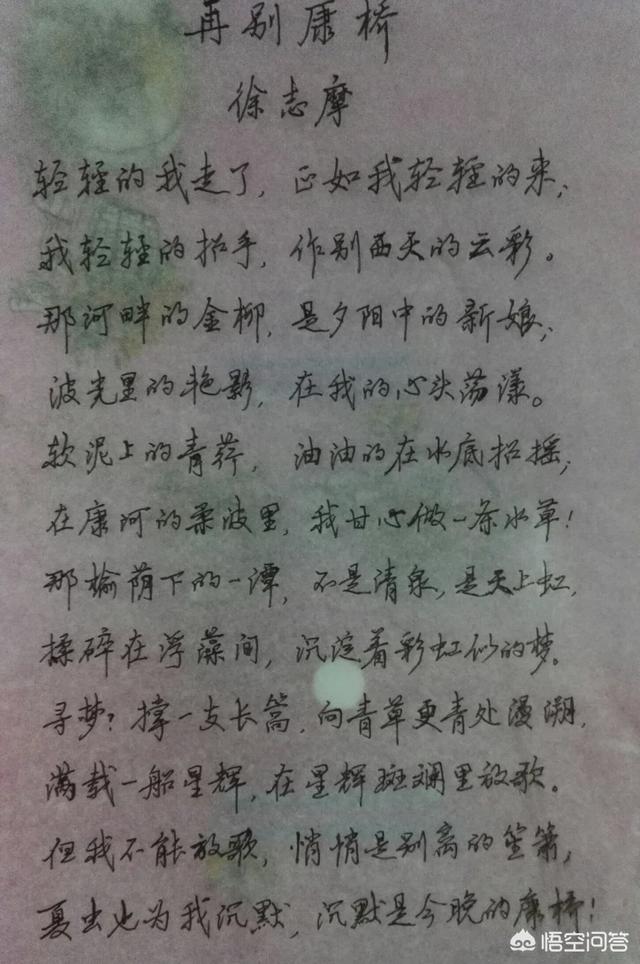 再别康桥
徐志摩
轻轻的我走了，正如我轻轻的来；
我轻轻的招手，作别西天的云彩。
那河畔的金柳，是夕阳中的新娘；
波光里的艳影，在我的心头荡漾。
软泥上的青荇，油油的在水底招摇；
在康河的柔波里，我甘心做一条水草！
那榆荫下的一潭，不是清泉，是天上虹，
揉碎在浮藻间，沉淀着彩虹似的梦。
寻梦？撑一支长篙，向青草更青处漫溯，
满载一船星辉，在星辉斑斓里放歌。
但我不能放歌，悄悄是别离的笙箫；
夏虫也为我沉默，沉默是今晚的康桥！
悟空问答